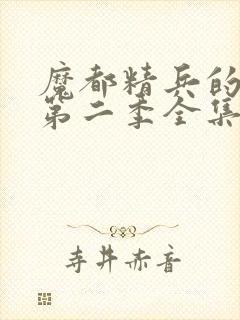 魔都精兵的
第二季全集
寺井赤音